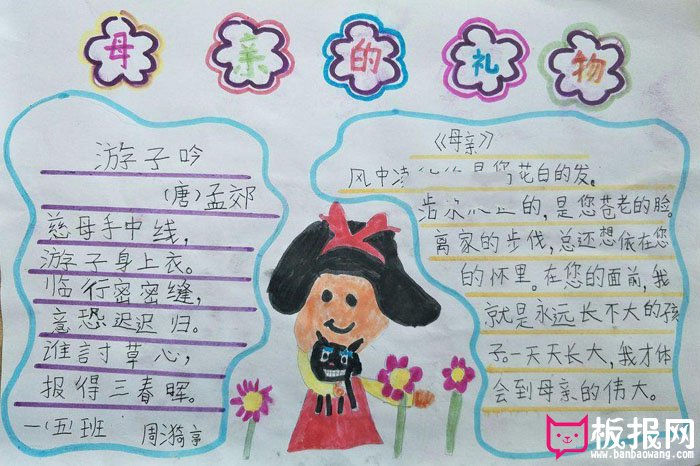 母亲的礼物
游子吟
(唐)孟郊
慈母手中线,
游子身上衣。
临行密密缝,
意恐迟迟归。
谁討草心,
报得三春晖。
一(五)班 周漪
《母亲》
风中 是您花白的发。
的,是您苍老的脸。
离家的步伐,总还想依在您
的怀里。在您的面前,我
就是永远长不大的孩
子。一天天长大,我才体
会到母亲的伟大。
板报网
www.banbaowang.com